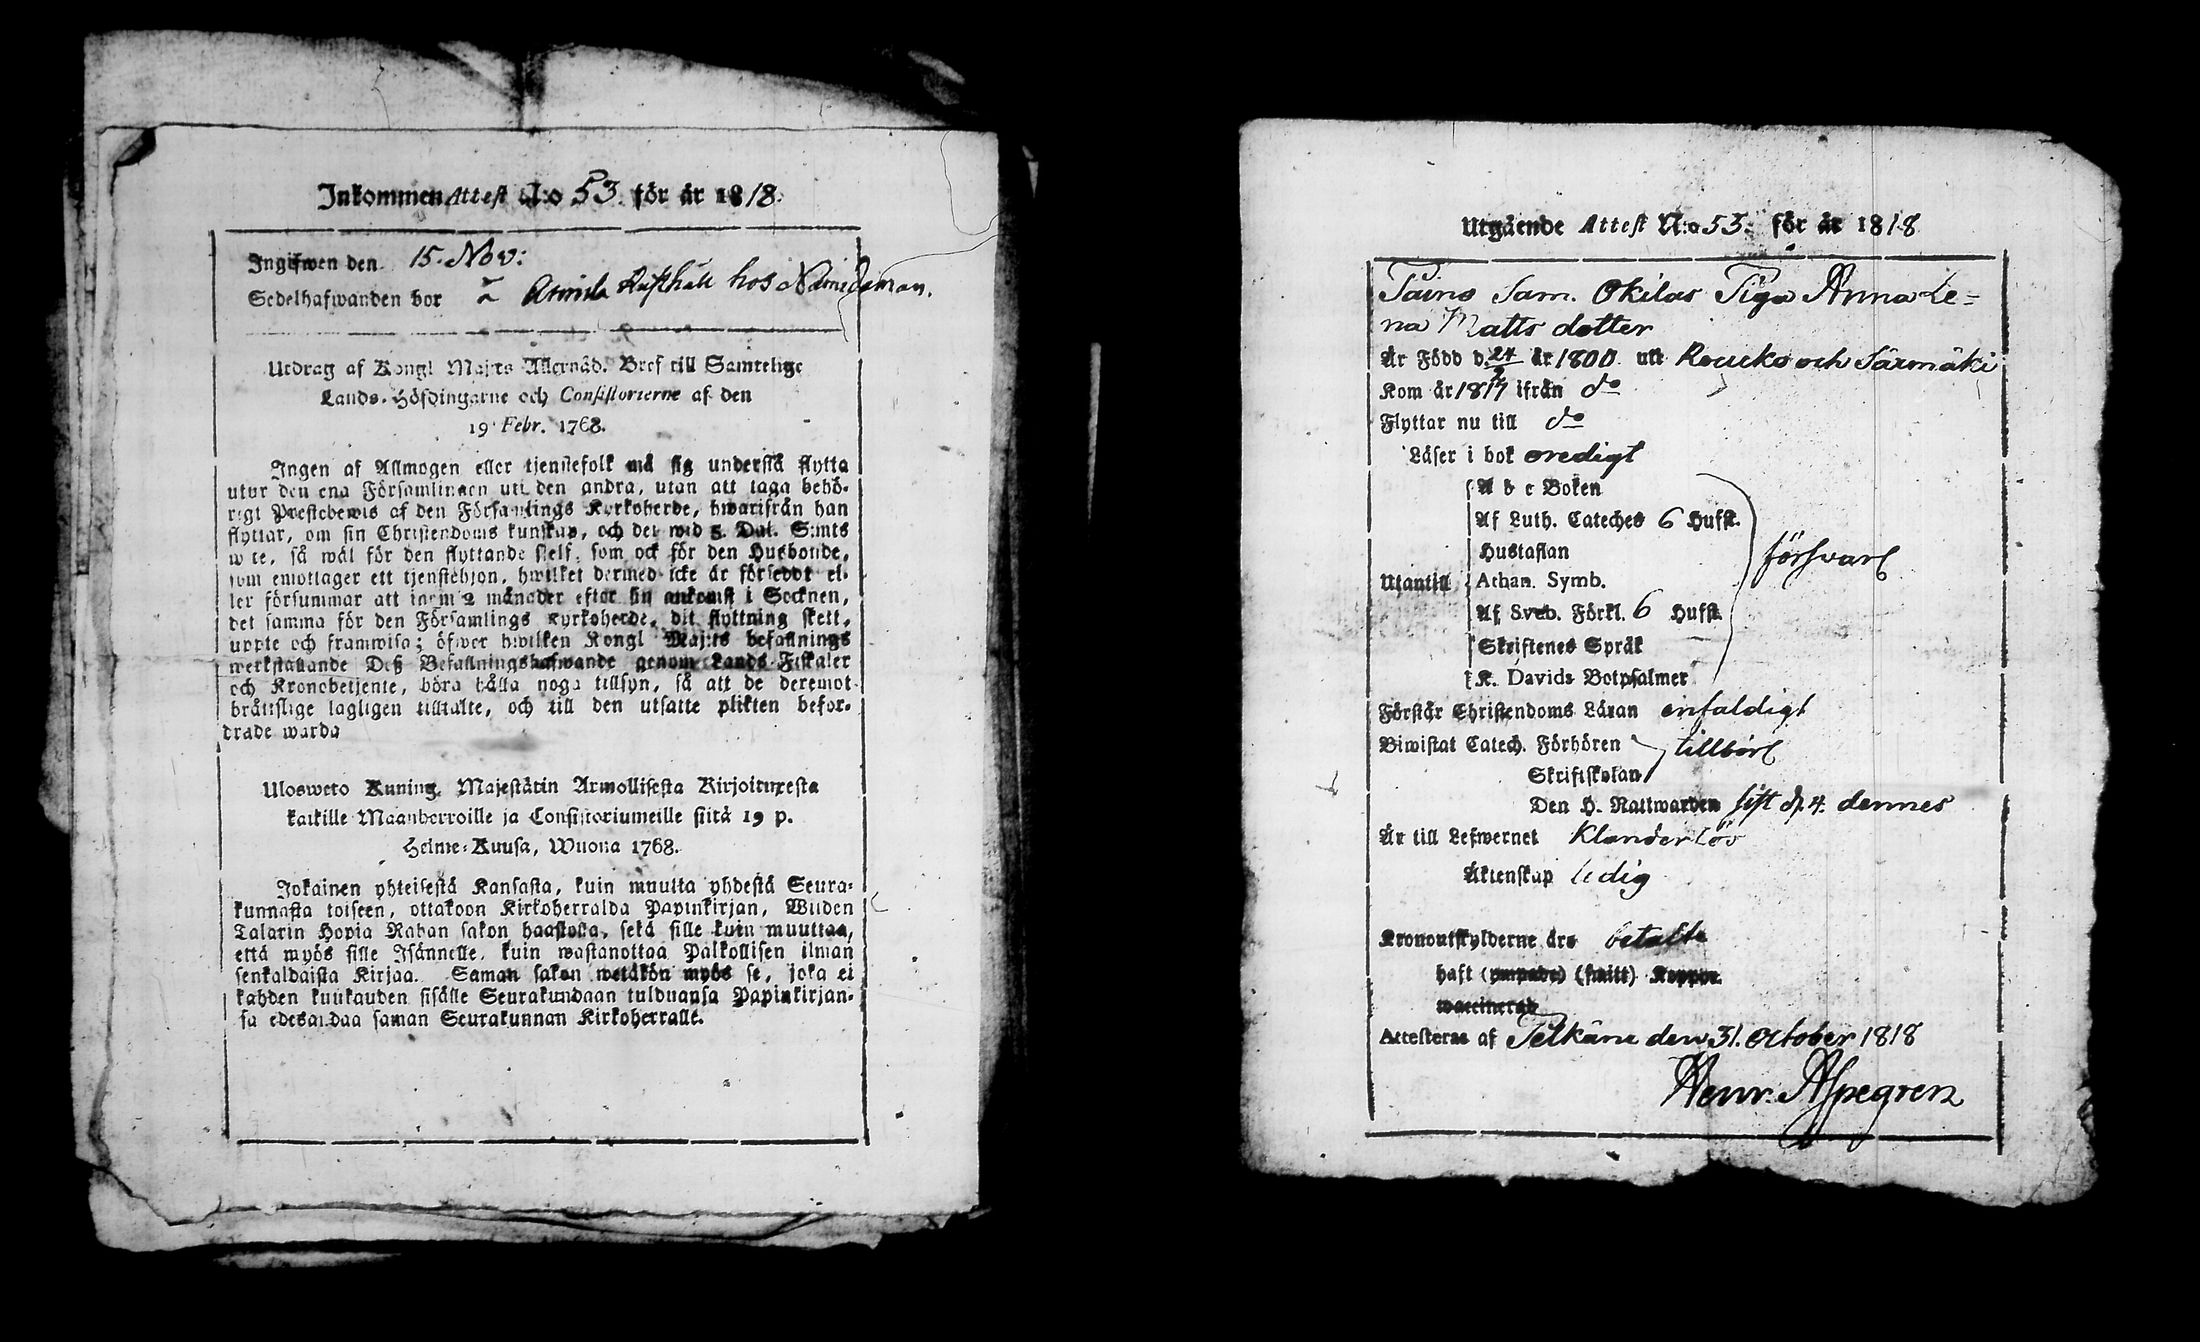 Inkommen Attest N:o 53. för år 1818.
Ingifwen den 15. Nov:
Sedelhafwanden bor å Rusthåll hos
Utdrag af Kongl Maj:ts Allernåd. Bref till Samtelige
Lands-Höfdingarne och Consistorierne af den
19 Febr. 1768.
Ingen af Allmogen eller tjenstefolk må sig understå flytta
utur den ena Församlingen uti den andra, utan att taga behö-
rigt Prestebewis af den Församlings Kyrkoherde, hwarifrån han
flyttar, om sin Christendoms kunskap, och det wid 5. Dal. S:mts
wite, så wäl för den flyttande sjelf, som ock för den Husbonde,
som emottager ett tjenstehjon, hwilket dermed icke är försedt el-
ler försummar att inom 2 månader efter sin ankomst i Socknen,
det samma för den Församlings Kyrkoherde, dit flyttning skett,
uppte och framwisa; öfwer hwilken Kongl Maj:ts befallnings
werkställande Deß Befallningshafwande genom Lands-Fiskaler
och Kronobetjente, böra hålla noga tillsyn, så att de deremot
bråttslige lagligen tilltalte, och till den utsatte plikten befor-
drade warda
Uloswetо Kuning. Majestätin Armollisesta Kirjoituxesta
kaikille Maanherroille ja Consistoriumeille siitä 19 p.
Helme-Kuusa, Wuona 1768.
Jokainen yhteisestä Kansasta, kuin muutta yhdestä Seura-
kunnasta toiseen, ottakoon Kirkoherralda Papinkirjan, Wiiden
Talarin Hopia Rahan sakon haastolla, sekä sille kuin muuttaa,
että myös sille Isännelle, kuin wastanottaa Palkollisen ilman
senkaldaista Kirjaa. Saman sakon wetäkön myös se, joka ei
kahden kuukauden sisälle Seurakundaan tulduansa Papinkirjan-
sa edesandaa saman Seurakunnan Kirkoherralle.
Utgående Attest N:o 53. för år 1818
Sam. Okilas Piga Anna Le=
na Matts dotter
Är Född d. 24/2 år 1800 utt och Särmäki
Kom år 1817 ifrån do
Flyttar nu till do
Läser i bok oredigt
A b c Boken
Af Luth. Cateches 6 Hufst.
Hustaflan
Utantill Athan. Symb. försvarl
Af Sveb. Förkl. 6 Hufst.
Skriftenes Språk
K. Davids Botpsalmer
Förstår Christendoms Läran enfaldigt
Biwistat Catech. Förhören tillbörl
Skriftskolan
Den H. Nattwarden sist d. 4. dennes
Är till Lefwernet Klanderlös
Äktenskap ledig
Kronoutskylderne äro betalte
haft (ympade) (smitt) Koppor
waccinerad
Attesteras af Pelkäne den 31. October 1818
Henr. Alpegren